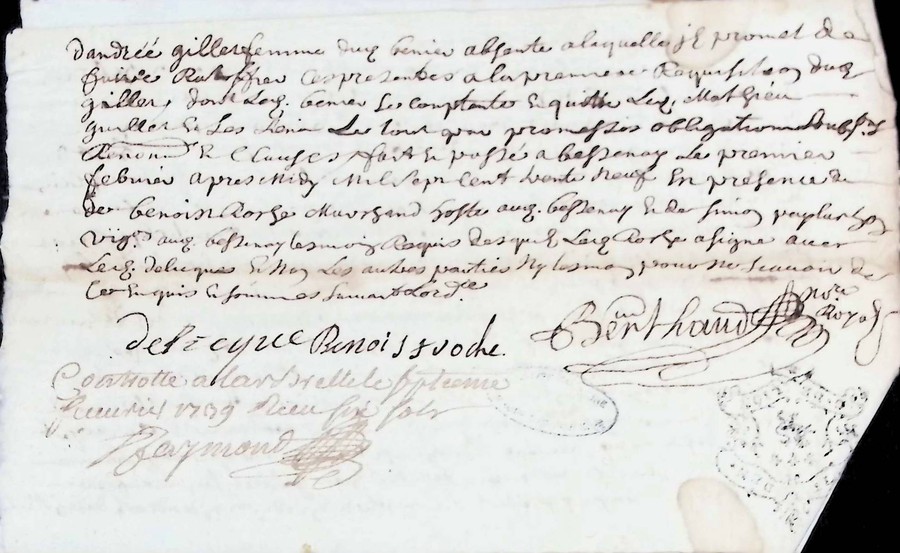 dandréé gillet femme dug benier absente a laquelle jl promet de
faire Ratiffier ces presentes a la premiere Requisition dug
gillet, dont Leq. benier se contente Et quitte Leq. Mathieu
guillet Et Les siens Le tout par promesses obligations soubs.ns
Renon.on Et Clauses fait Et passé a bessenay Le premier
febvrier apres Midy Mil sept Cent trente neuf En presence de
de benoist Roche Marchand hoste aud. bessenay Et de simon
vig.on aud. bessenay tesmoins Requis desquels Leq Roche a signe avec
Leq. delecque Et non Les autres parties Ny tesmoin pour ne scavoir de
ce Enquis Et sommes suivant L'ord.ce
delecque Benoist roche.
Berthaud no.re Royal
Controllé a Larbrelle le
feuvrier 1739 Receu six sols
Raymond